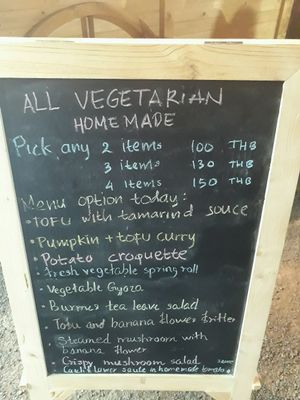 ALL VEGETARIAN
HOMEMADE
Pick any 2 items 100 THB
3 items 130 THB
4 items 150 THB
Menu option today:
• TOFU with tamarind souce
• Pumpkin + tofu curry
• Potato croquette
• fresh vegetable spring roll
• Vegetable Gyoza
• Burmes tea leave salad
• Tofu and banana flower fritter
• Steamed mushroom with
banana flower
• Crispy mushroom salad
• Cauliflower saute in homemade tomato